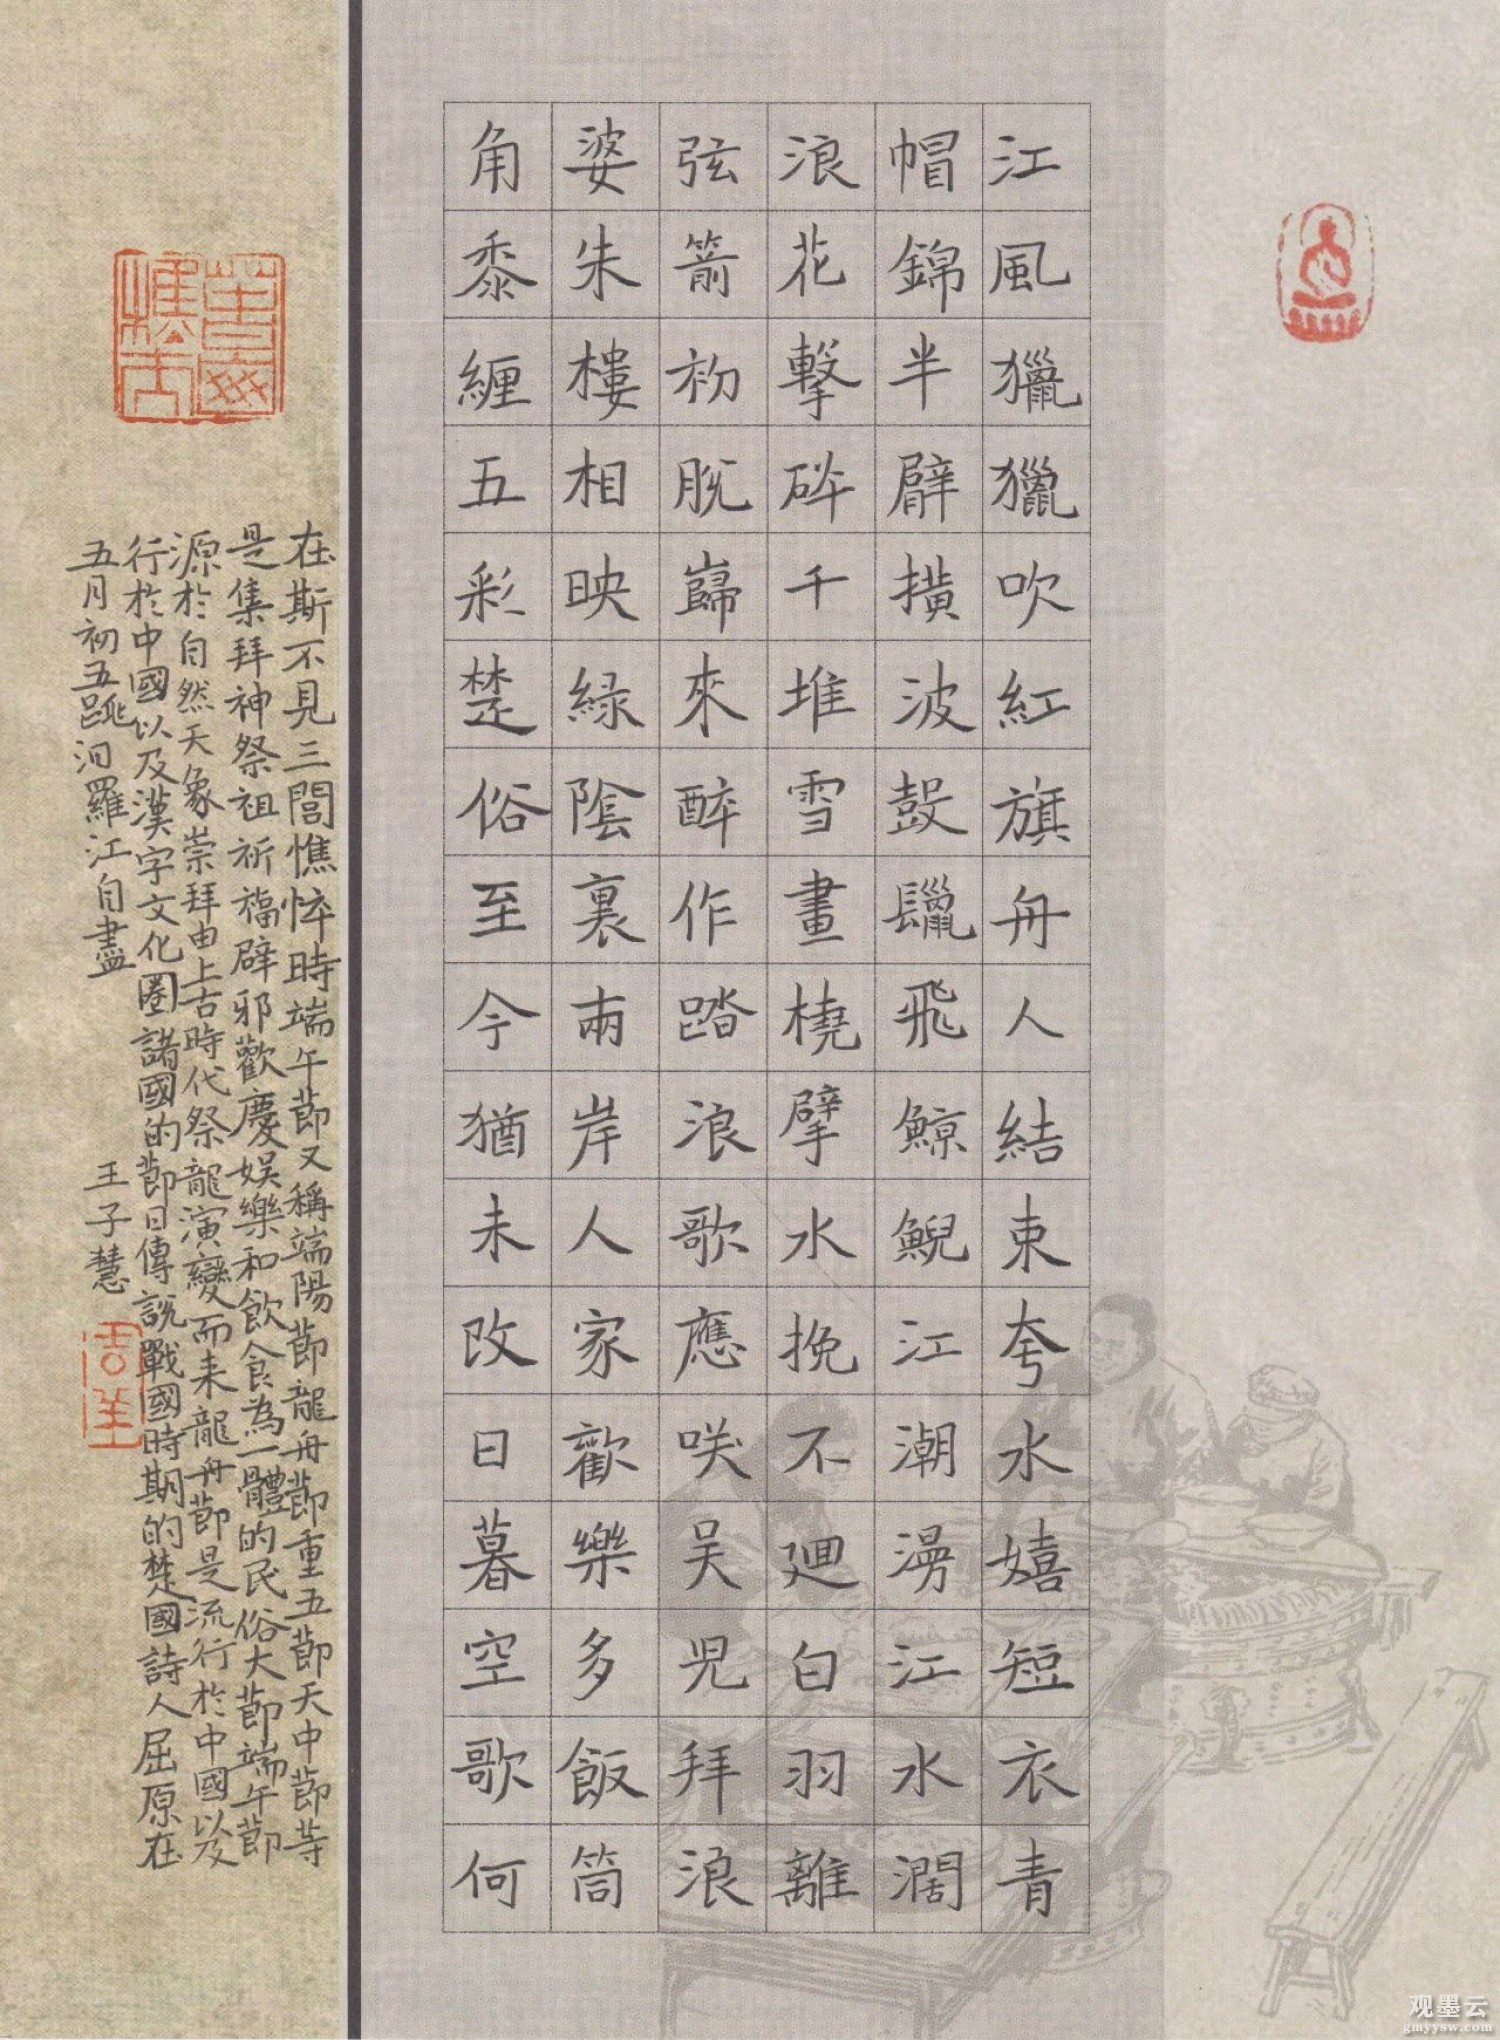 江風獵獵吹紅旗舟人結束夸水嬉短衣青
帽錦半臂撗波鼓鬣飛鯨鯢江潮漫江水濶
浪花擊碎千堆雪畫橈擘水挽不廻白羽離
弦箭初脫歸來醉作踏浪歌應咲吴兒拜浪
婆朱樓相映緑陰裏兩岸人家歡樂多飯筒
角黍纏五彩楚俗至今猶未改日暮空歌何
在斯不見三閭憔悴時端午節又稱端陽節龍舟節重五節天中節等
是集拜神祭祖祈福辟邪歡慶娱樂和飲食為一體的民俗大節端午節
源於自然天象崇拜由上古時代祭龍演變而来龍舟節是流行於中國以及
行於中國以及漢字文化圈諸國的節日傳説戰國時期的楚國詩人屈原在
五月初五跳汨羅江自盡 王子慧
观墨云
gmyysw.com